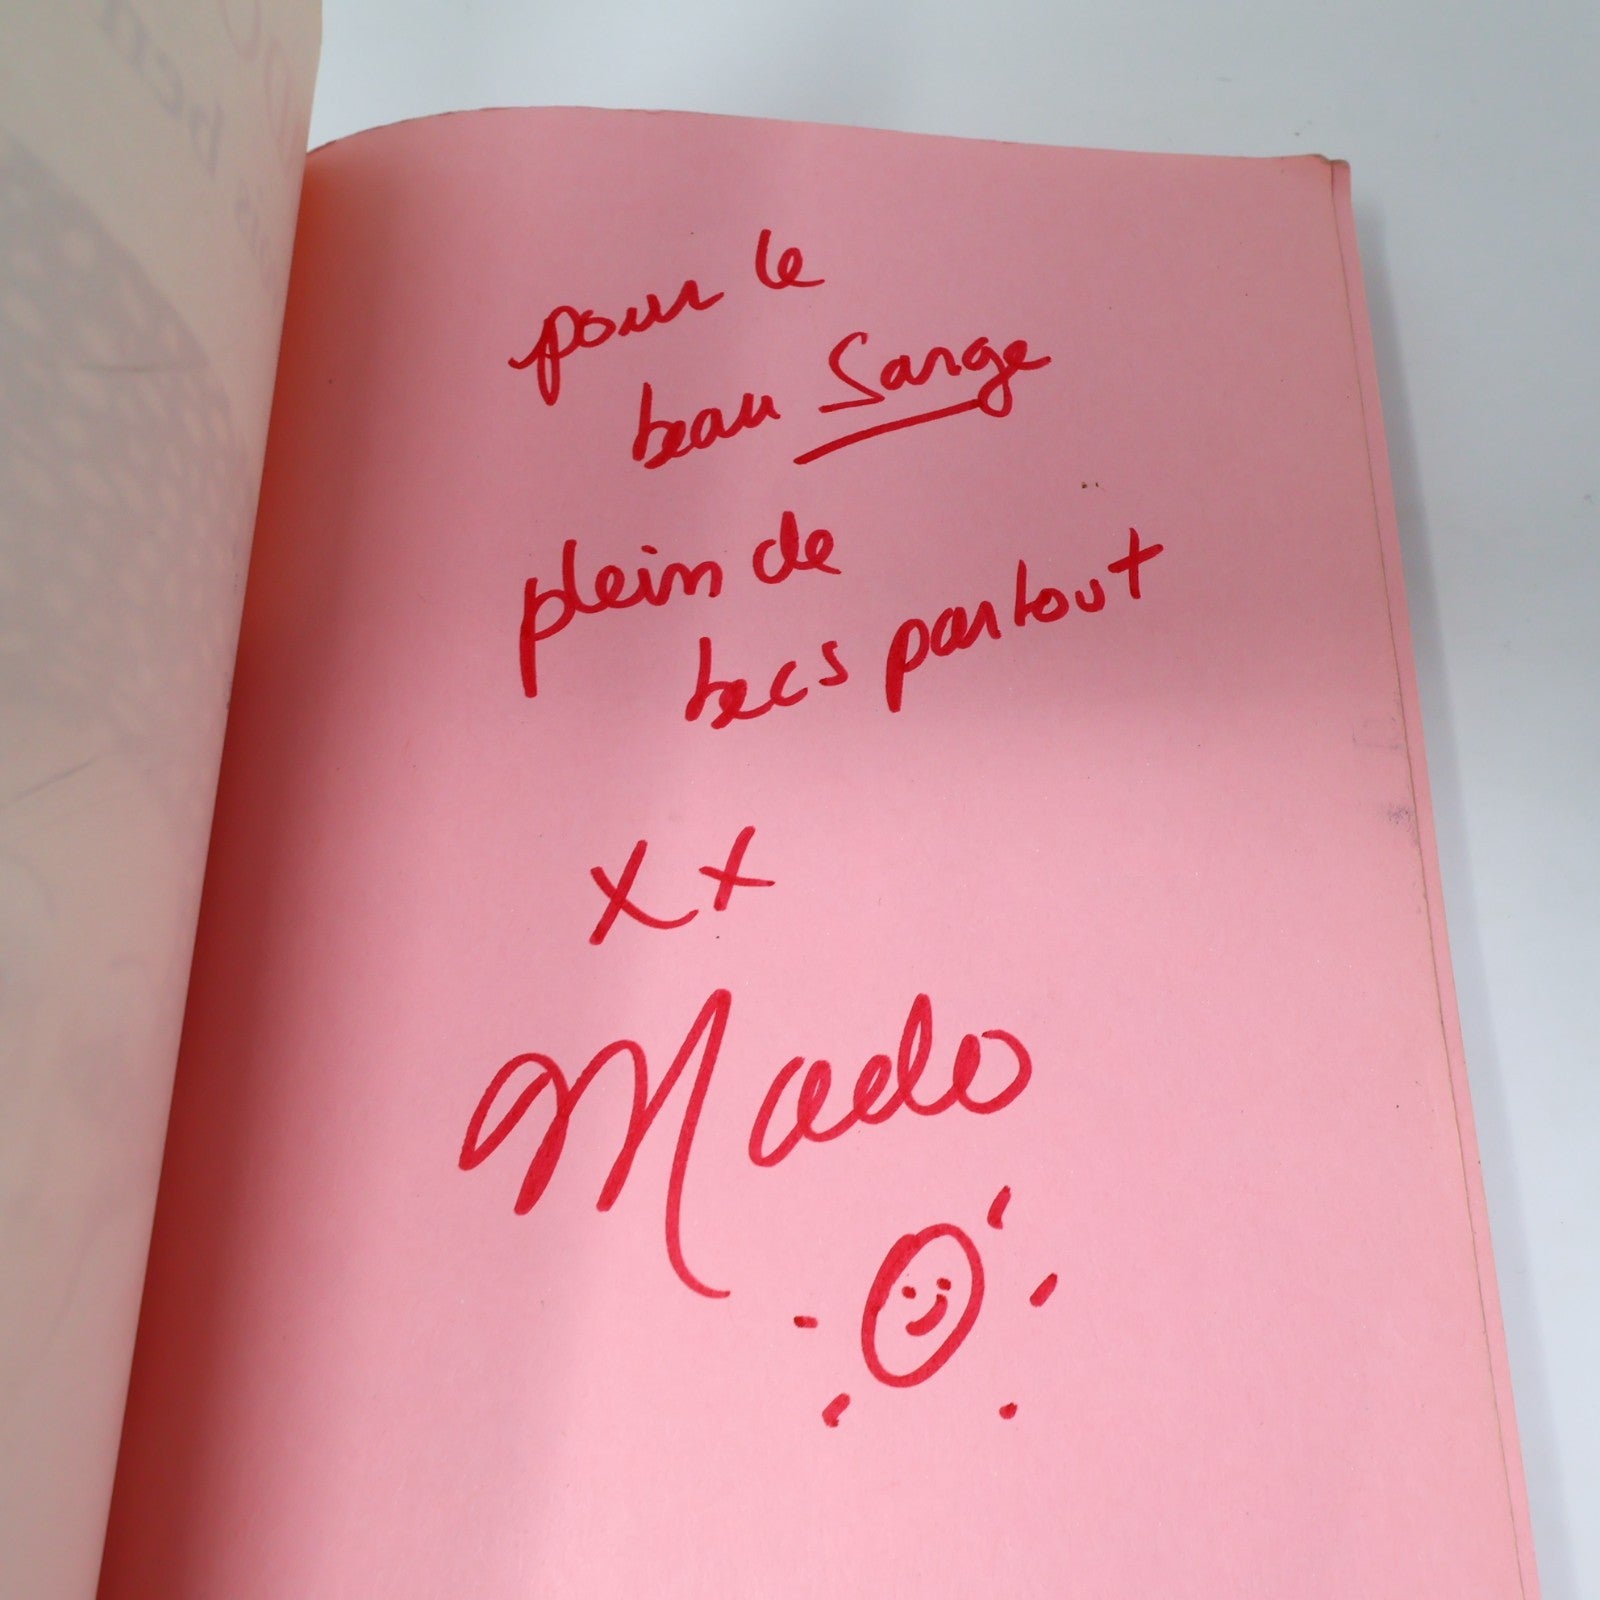 pour le
beau Sarge
plein de
becs partout
xx
Mado